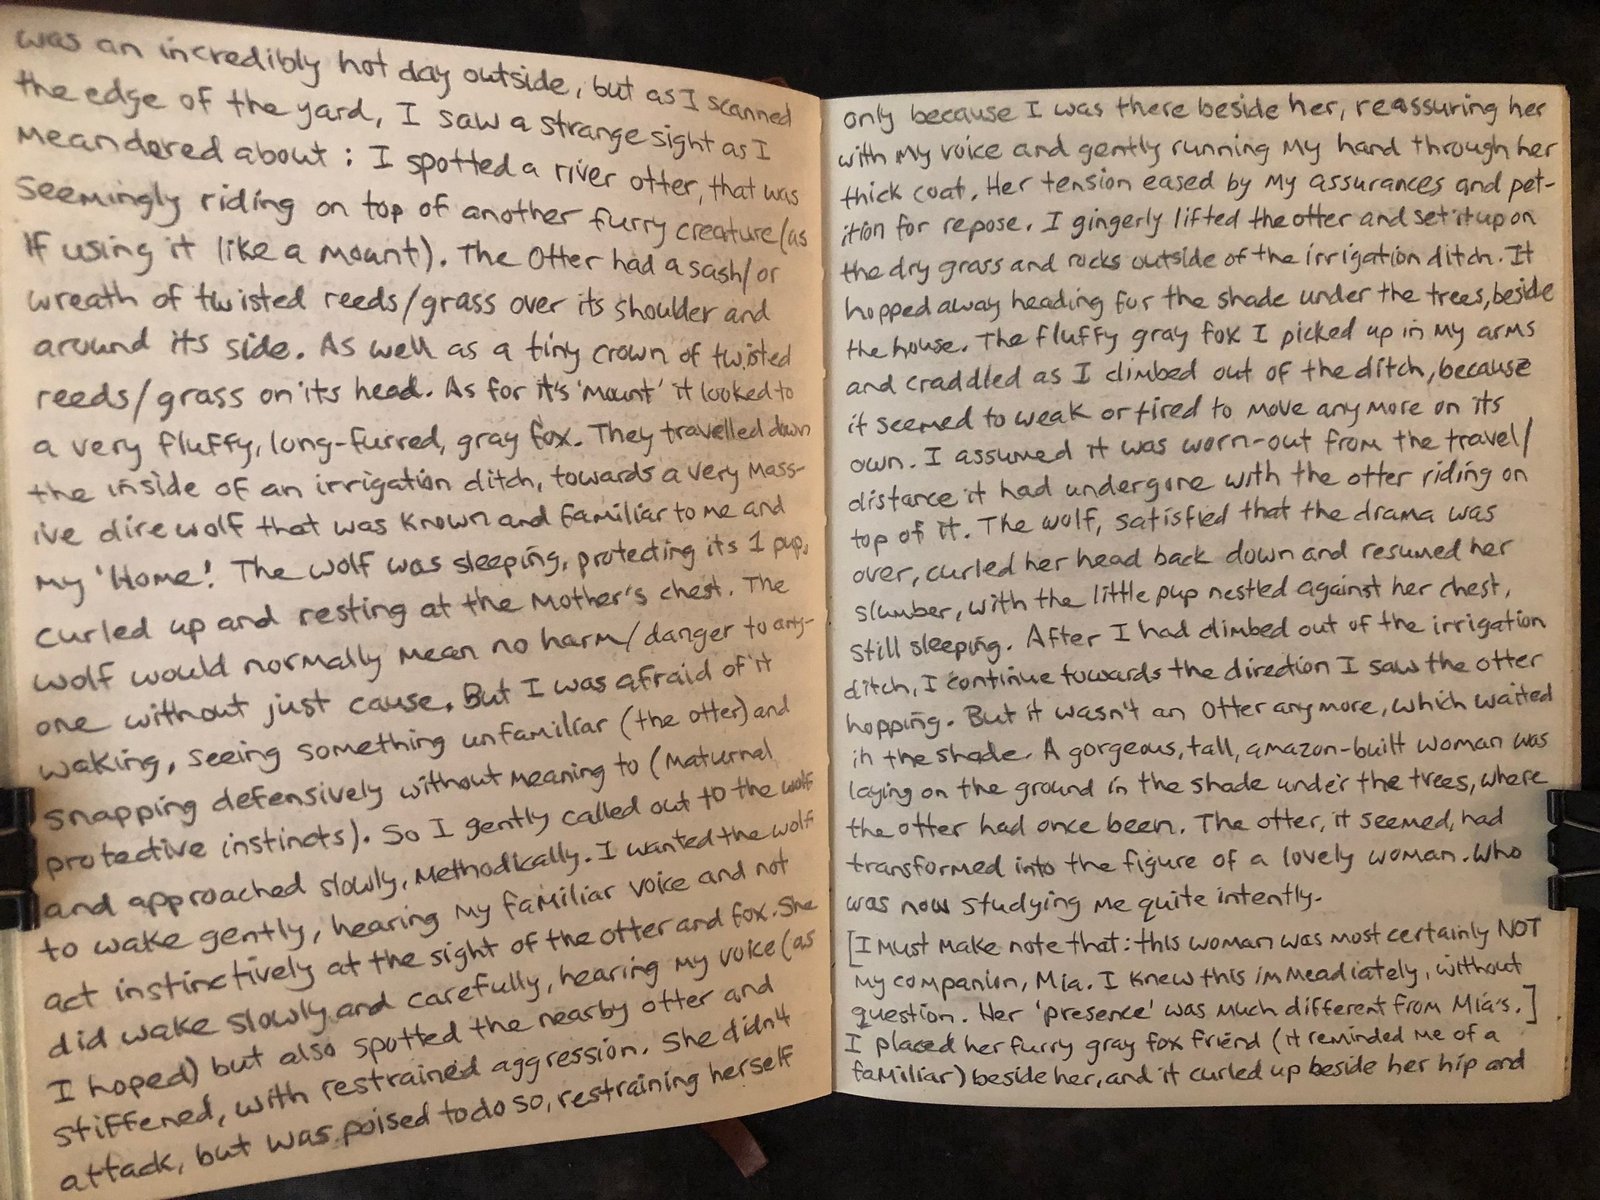 was an incredibly hot day outside, but as I scanned
the edge of the yard, I saw a strange sight as I
meandered about: I spotted a river otter, that was
seemingly riding on top of another furry creature (as
if using it like a mount). The Otter had a sash/or
wreath of twisted reeds/grass over its shoulder and
around its side. As well as a tiny crown of twisted
reeds/grass on its head. As for it's 'mount' it looked to
a very fluffy, long-furred, gray fox. They travelled down
the inside of an irrigation ditch, towards a very mass-
ive dire wolf that was known and familiar to me and
my 'Home'. The wolf was sleeping, protecting its 1 pup,
curled up and resting at the Mother's chest. The
wolf would normally mean no harm/danger to any-
one without just cause. But I was afraid of it
waking, seeing something unfamiliar (the otter) and
snapping defensively without meaning to (maturnal
protective instincts). So I gently called out to the wolf
and approached slowly, methodically. I wanted the wolf
to wake gently, hearing my familiar voice and not
act instinctively at the sight of the otter and fox. She
did wake slowly and carefully, hearing my voice (as
I hoped) but also spotted the nearby otter and
stiffened, with restrained aggression. She didn't
attack, but was poised to do so, restraining herself
only because I was there beside her, reassuring her
with my voice and gently running my hand through her
thick coat. Her tension eased by my assurances and pet-
ition for repose. I gingerly lifted the otter and set it up on
the dry grass and rocks outside of the irrigation ditch. It
hopped away heading for the shade under the trees, beside
the house. The fluffy gray fox I picked up in my arms
and craddled as I climbed out of the ditch, because
it seemed to weak or tired to move anymore on its
own. I assumed it was worn-out from the travel/
distance it had undergone with the otter riding on
top of it. The wolf, satisfied that the drama was
over, curled her head back down and resumed her
slumber, with the little pup nestled against her chest,
still sleeping. After I had climbed out of the irrigation
ditch, I continue towards the direction I saw the otter
hopping. But it wasn't an Otter anymore, which waited
in the shade. A gorgeous, tall, amazon-built woman was
laying on the ground in the shade under the trees, where
the otter had once been. The otter, it seemed, had
transformed into the figure of a lovely woman. Who
was now studying me quite intently.
[I must make note that: this woman was most certainly NOT
my companion, Mia. I knew this immeadiately, without
question. Her 'presence' was much different from Mia's.]
I placed her furry gray fox friend (it reminded me of a
familiar) beside her, and it curled up beside her hip and